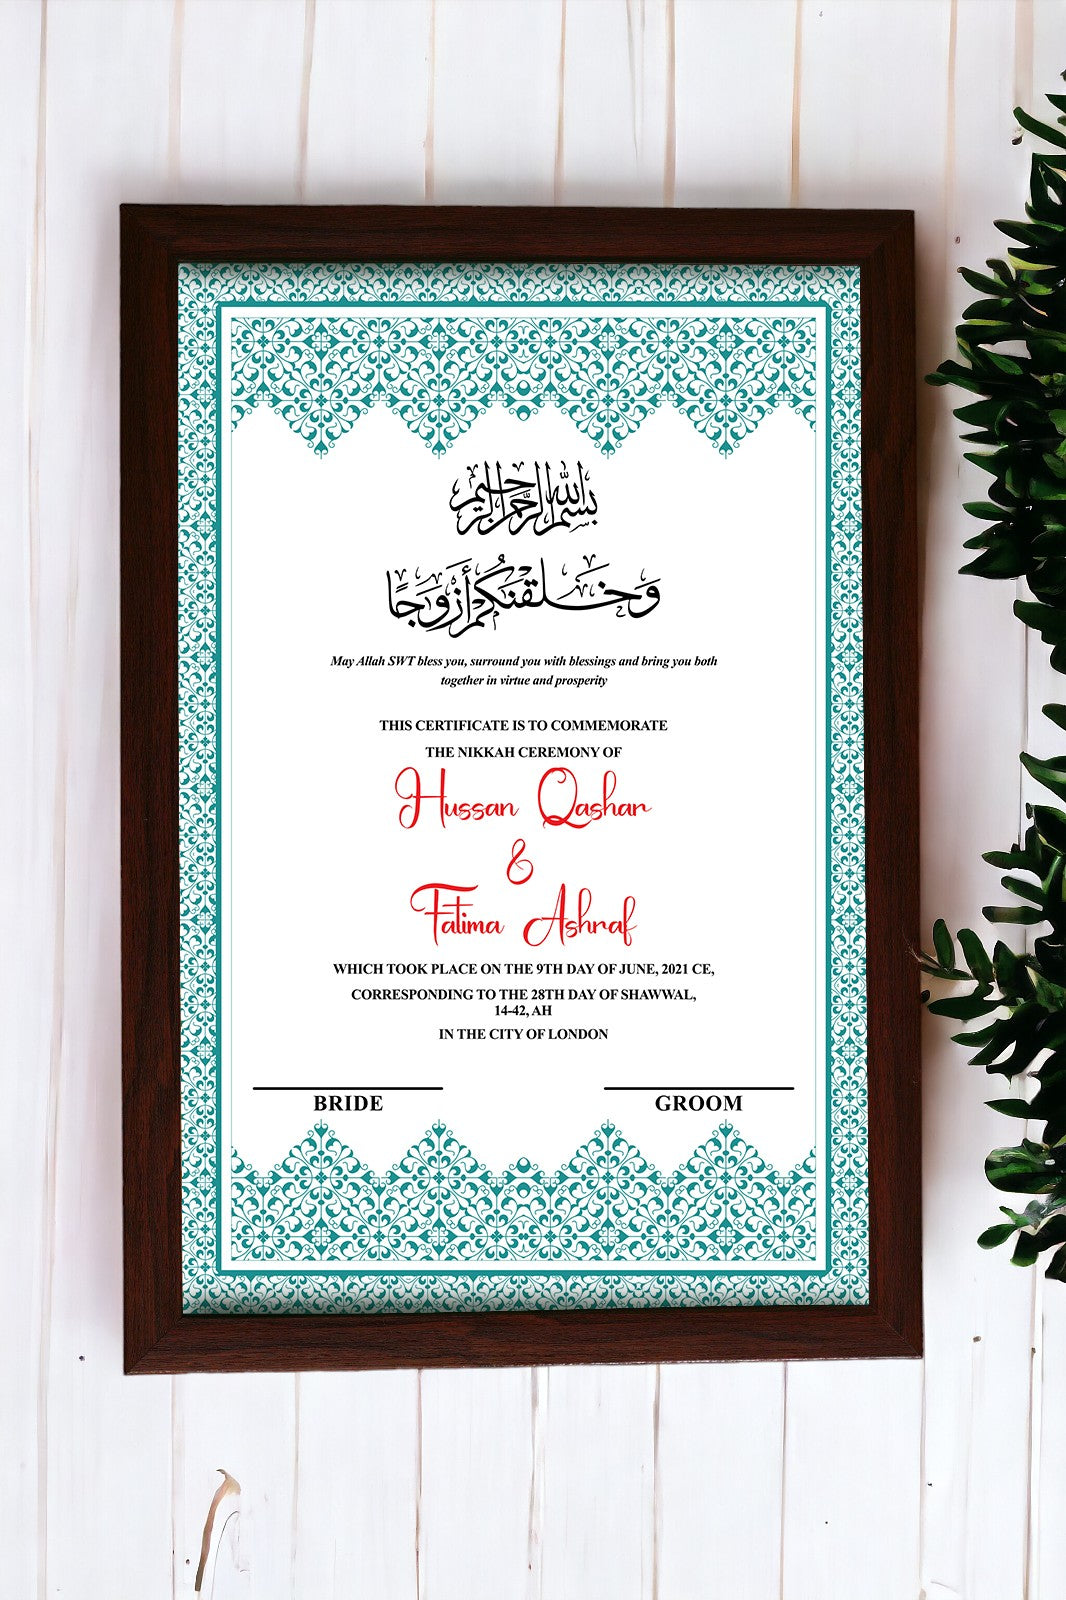 بسم الله الرحمن الرحيم
وَخَلَقْنَٰكُمْ أَزْوَٰجًا
May Allah SWT bless you, surround you with blessings and bring you both
together in virtue and prosperity
THIS CERTIFICATE IS TO COMMEMORATE
THE NIKKAH CEREMONY OF
Hussan Qashar
&
Fatima Ashraf
WHICH TOOK PLACE ON THE 9TH DAY OF JUNE, 2021 CE,
CORRESPONDING TO THE 28TH DAY OF SHAWWAL,
14-42, AH
IN THE CITY OF LONDON
BRIDE
GROOM